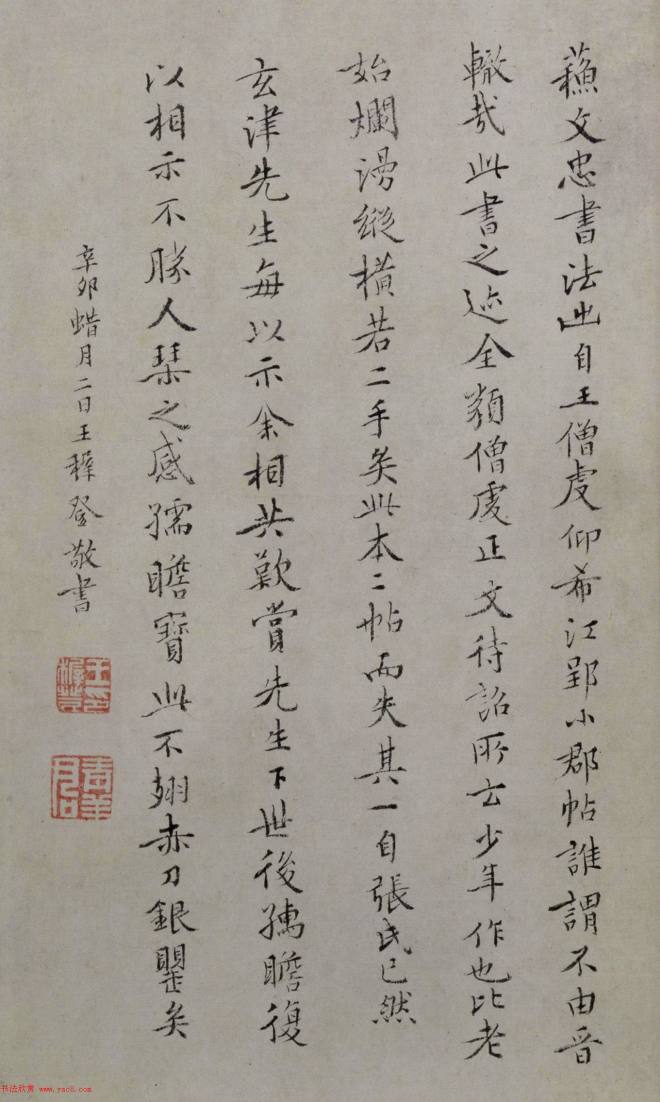 蘓文忠書法出自王僧虔仰希江郢小郡帖誰謂不由晉
轍哉此書之迹全類僧虔正文待詔所云少年作也比老
始爛漫縱橫若二手矣此本二帖而失其一自張氏已然
玄津先生每以示余相共歎賞先生下世後孺瞻復
以相示不勝人琹之感孺瞻寶此不翅赤刀銀瞿矣
辛卯蜡月二日王穉登敬書
青羊
书法欣赏 www.yac8.com